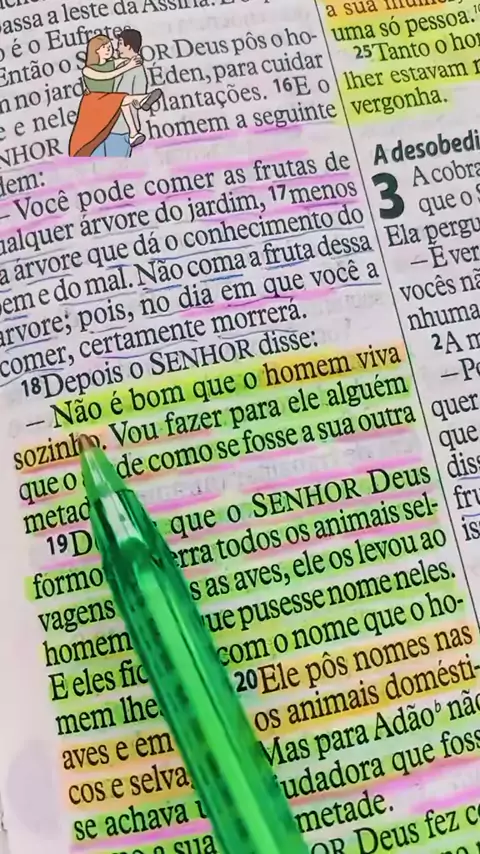 passa a leste da Assíria. E o
o é o Eufrates.
Então o OR Deus pôs o ho-
no jard Eden, para cuidar
e nele plantações. 16E o
NHOR homem a seguinte
dem:
— Você pode comer as frutas de
ualquer árvore do jardim, 17menos
a árvore que dá o conhecimento do
em e do mal. Não coma a fruta dessa
árvore; pois, no dia em que você a
comer, certamente morrerá.
18Depois o SENHOR disse:
— Não é bom que o homem viva
sozinho. Vou fazer para ele alguém
que o de como se fosse a sua outra
metad
19D que o SENHOR Deus
formo erra todos os animais sel-
vagens s as aves, ele os levou ao
homem ue pusesse nome neles.
E eles fic com o nome que o ho-
mem lhe 20Ele pôs nomes nas
aves e em os animais domésti-
cos e selva Mas para Adãob não
se achava u judadora que foss
a sua metade.
OR Deus fez c
a sua
uma só pessoa.
25Tanto o ho
lher estavam
vergonha.
A desobedi
3 A cobra
que o s
Ela pergu
— É ver
vocês nã
nhuma
2A m
— Po
quer
que
diss
fru
is